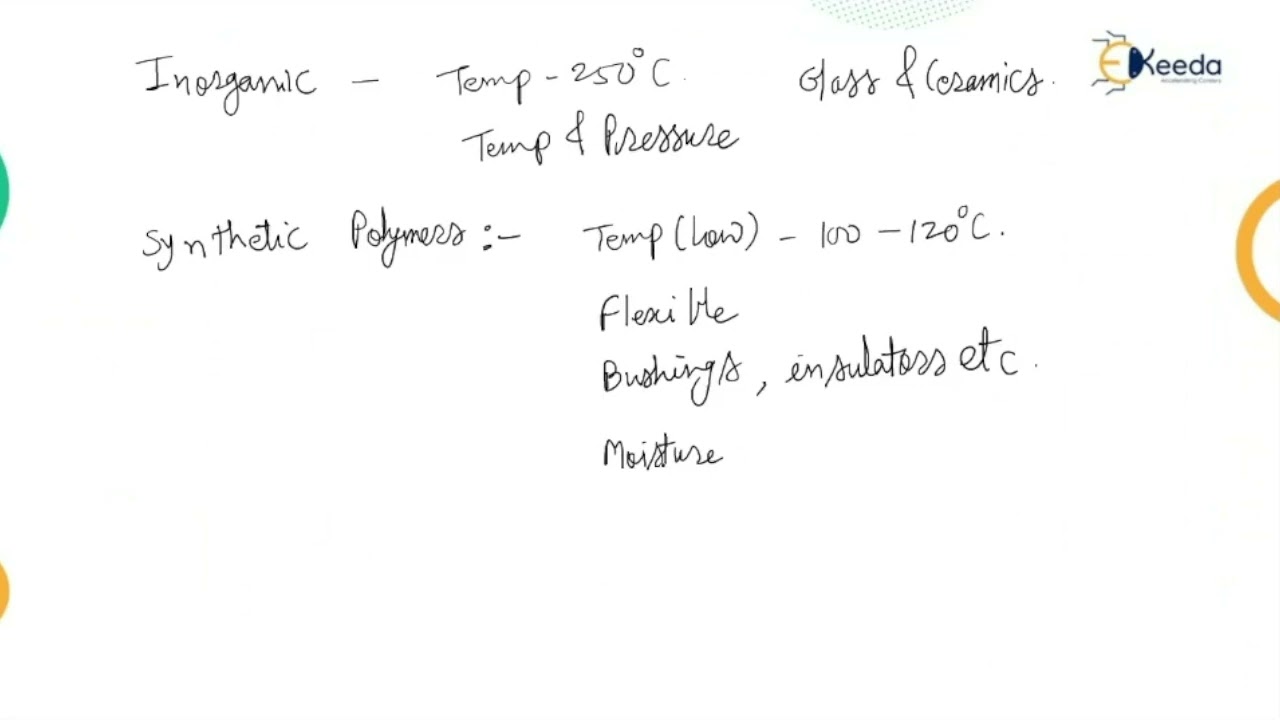 Inorganic - Temp - 250°C. Glass & Ceramics.
Temp & Pressure
Synthetic Polymers :- Temp (Low) - 100 - 120°C.
Flexible
Bushings, insulators etc.
Moisture
EKeeda